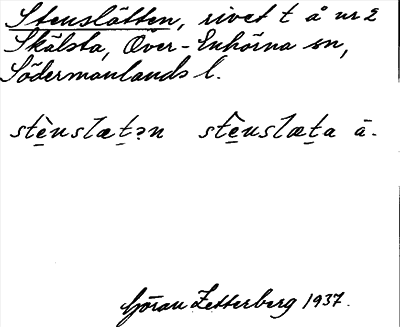 Stenslätten, rivet t å nr 2
Skälsta, Över-Enhörna sn,
Södermanlands l.
stè̱nslæṯən stè̱nslæṯa ä.
Göran Zetterberg 1937.